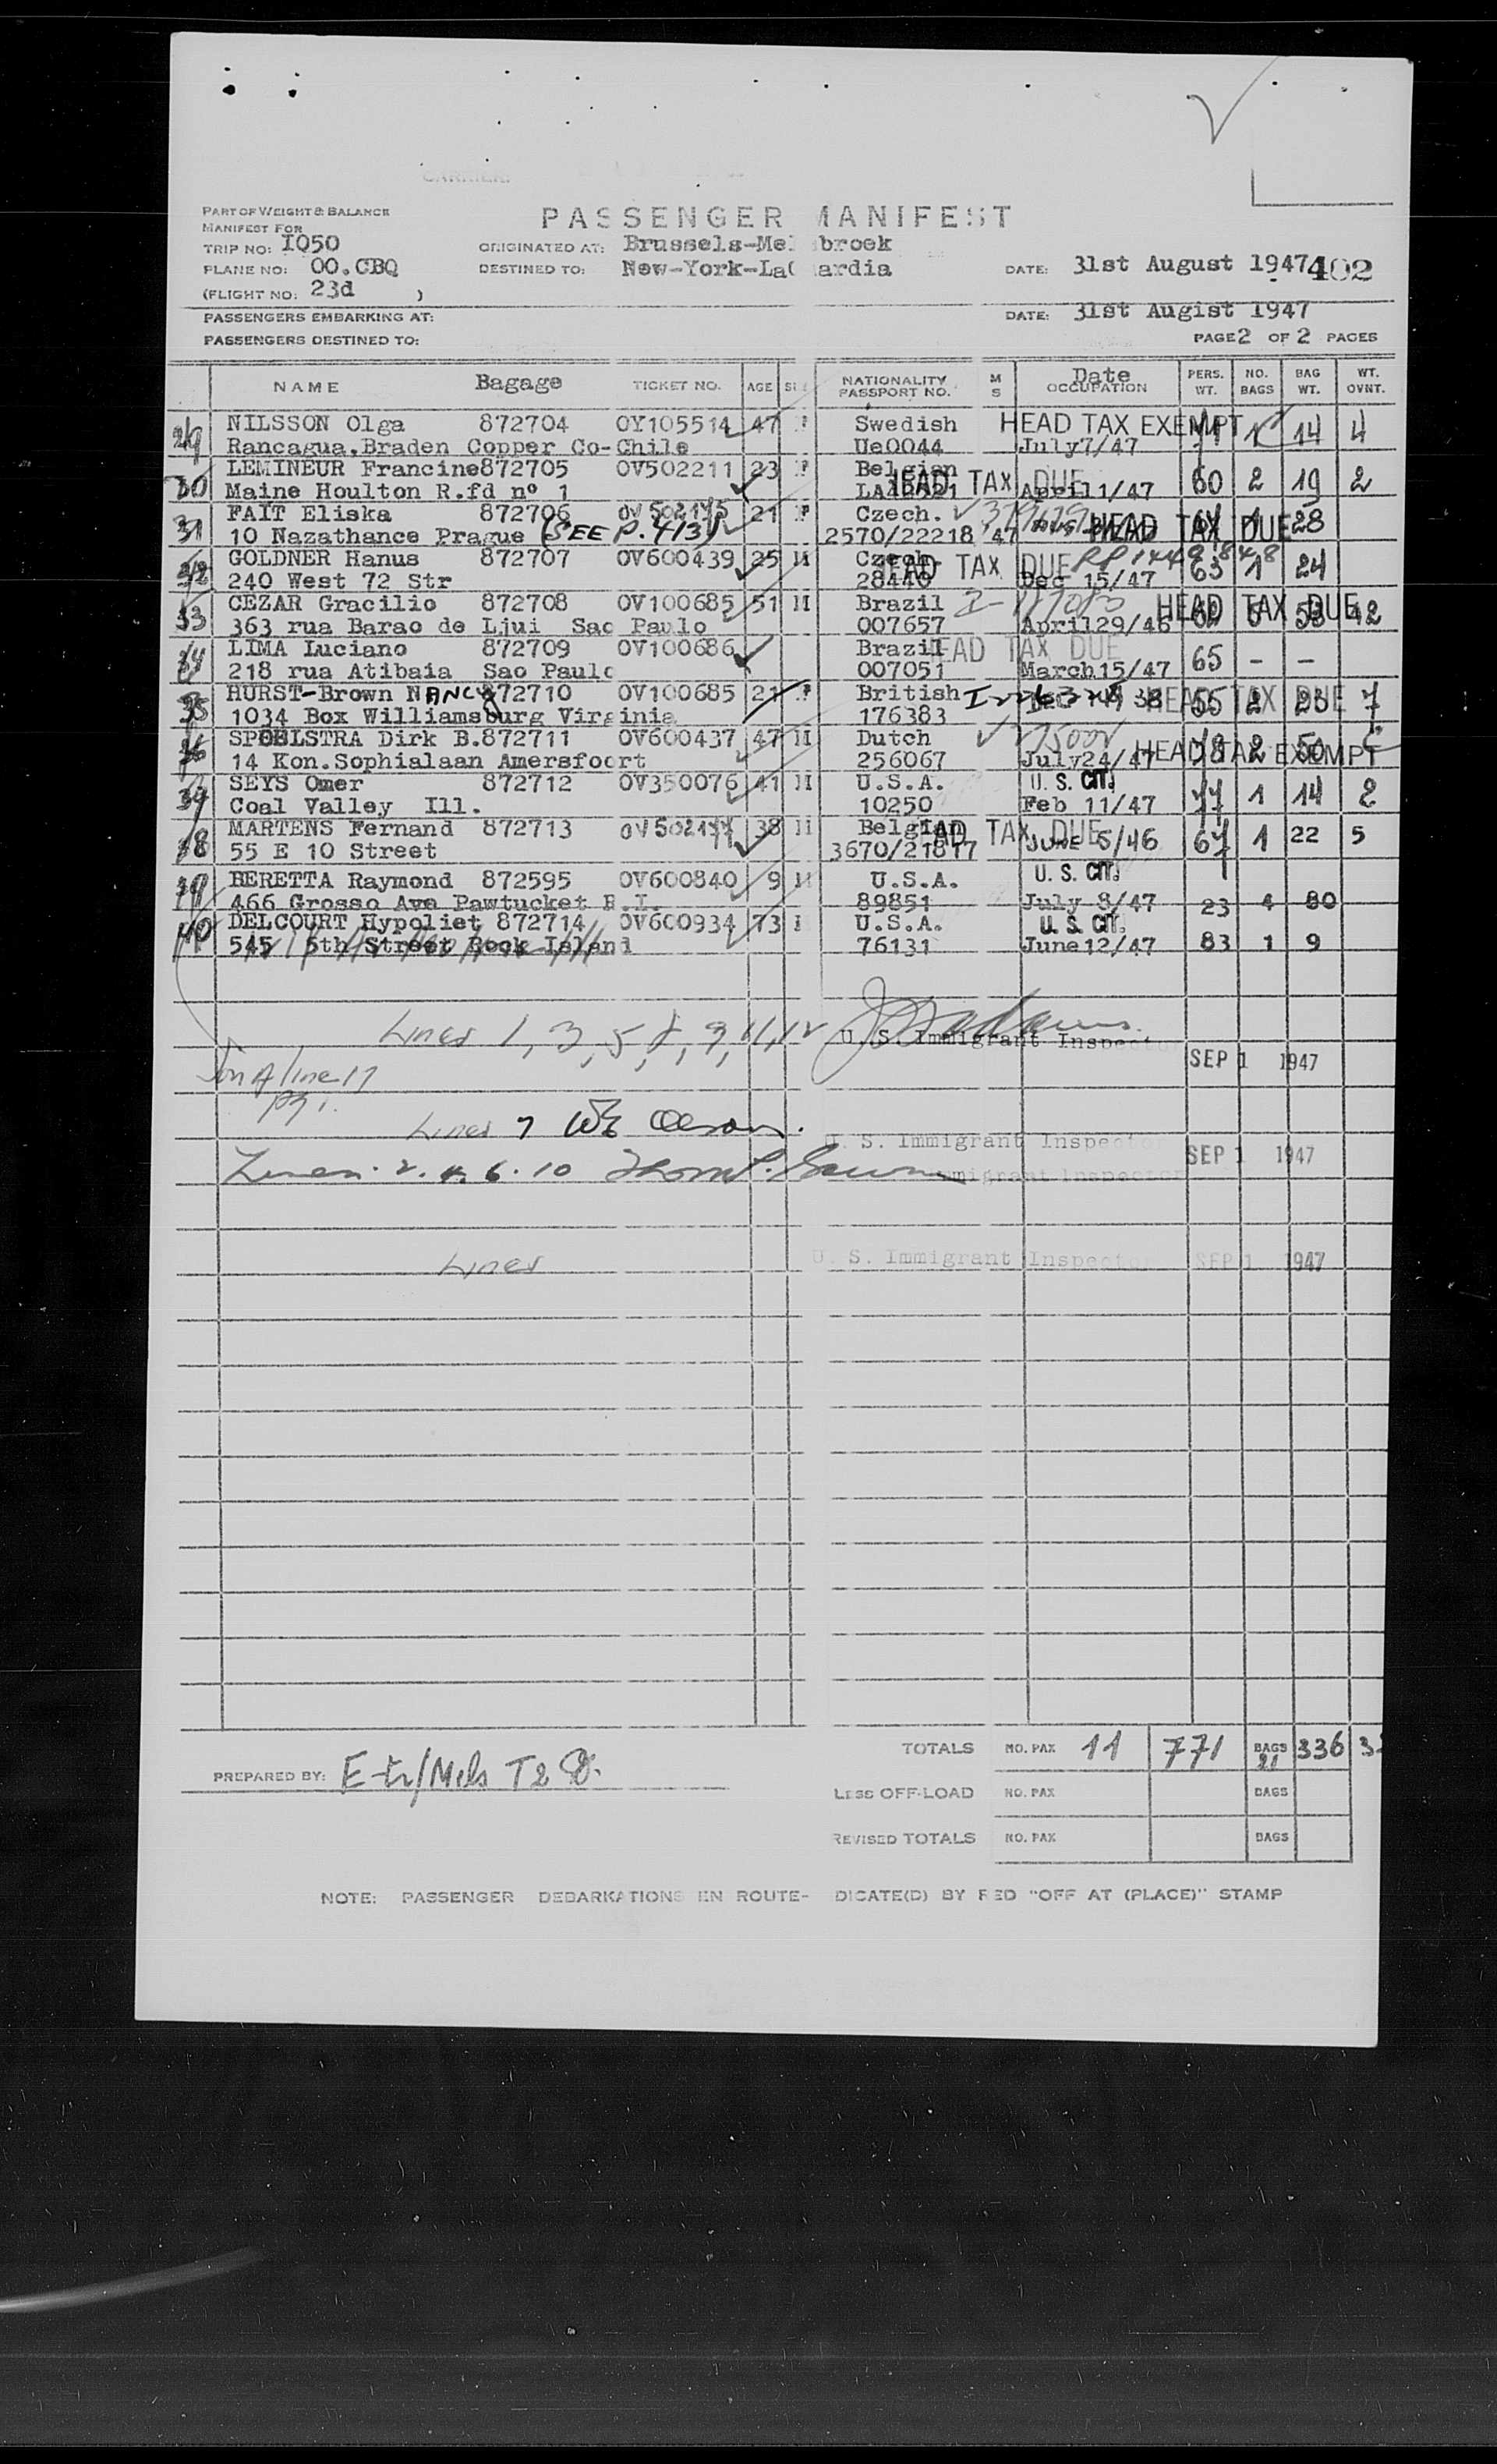 PART OF WEIGHT & BALANCE
MANIFEST FOR
PASSENGER MANIFEST
TRIP NO: IQ50
ORIGINATED AT: Brussels-Me broek
PLANE NO: OO.CBQ
DESTINED TO: New-York-La ardia
DATE: 31st August 1947 402
(FLIGHT NO: 23d )
PASSENGERS EMBARKING AT:
DATE: 31st Augist 1947
PASSENGERS DESTINED TO:
PAGE 2 OF 2 PAGES
NAME Bagage TICKET NO. AGE NATIONALITY PASSPORT NO. M S Date OCCUPATION PERS. WT. NO. BAGS BAG WT. WT. OVNT.
29 NILSSON Olga 872704 OY105514 47 Swedish HEAD TAX EXEMPT 14 4
Rancagua,Braden Copper Co-Chile Ue0044 July7/47
30 LEMINEUR Francine872705 OV502211 23 Belgian HEAD TAX DUE 60 2 19 2
Maine Houlton R.fd nº 1 April1/47
31 FAIT Eliska 872706 OV502175 21 Czech. HEAD TAX DUE 28
10 Nazathance Prague (SEE P. 413) 2570/22218
32 GOLDNER Hanus 872707 OV600439 25 M Czech EAD TAX DUE 63 1 24
240 West 72 Str 28440 Dec 15/47
33 CEZAR Gracilio 872708 OV100685 51 M Brazil HEAD TAX DUE
363 rua Barao de Ljui Sao Paulo 007657 April29/46
34 LIMA Luciano 872709 OV100686 Brazil EAD TAX DUE 65 - -
218 rua Atibaia Sao Paulo 007051 March15/47
35 HURST-Brown NANCY 872710 OV100685 21 British HEAD TAX DUE 55 2 23 7
1034 Box Williamsburg Virginia 176383
36 SPOELSTRA Dirk B.872711 OV600437 47 M Dutch HEAD TAX EXEMPT 78 2 50
14 Kon.Sophialaan Amersfoort 256067 July24/47
SEYS Omer 872712 OV350076 41 M U.S.A. U. S. CIT. 77 1 14 2
Coal Valley Ill. 10250 Feb 11/47
38 MARTENS Fernand 872713 OV502177 38 M Belgian AD TAX DUE 67 1 22 5
55 E 10 Street 3670/21817 June 5/46
39 BERETTA Raymond 872595 OV600840 9 M U.S.A. U. S. CIT. 23 4 80
466 Grosso Ave Pawtucket R.I. 89851 July 8/47
40 DELCOURT Hypoliet 872714 OV600934 73 U.S.A. U. S. CIT. 83 1 9
545 5th Street Rock Island 76131 June12/47
Lines 1, 3, 5, 8, 9, 11, 12
U. S. Immigrant Inspector SEP 1 1947
line 17
Lines 7
U. S. Immigrant Inspector SEP 1 1947
Lines 2. 4. 6. 10
mmigrant Inspector
Lines U. S. Immigrant Inspector SEP 1 1947
TOTALS NO. PAX 11 771 BAGS 21 336
PREPARED BY:
LESS OFF-LOAD NO. PAX BAGS
REVISED TOTALS NO. PAX BAGS
NOTE: PASSENGER DEBARKATIONS EN ROUTE- DICATE(D) BY RED "OFF AT (PLACE)" STAMP